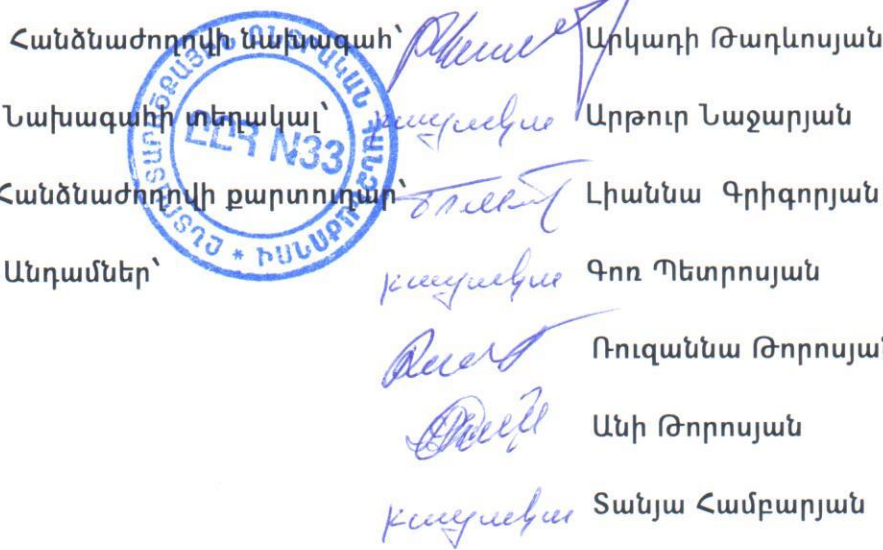 Հանձնաժողովի նախագահ՝ Արկադի Թադևոսյան
Նախագահի տեղակալ՝ բացակա Արթուր Նաջարյան
Հանձնաժողովի քարտուղար՝ Լիաննա Գրիգորյան
Անդամներ՝ բացակա Գոռ Պետրոսյան
Ռուզաննա Թորոսյան
Անի Թորոսյան
բացակա Տանյա Համբարյան
ԸԸՀ N33